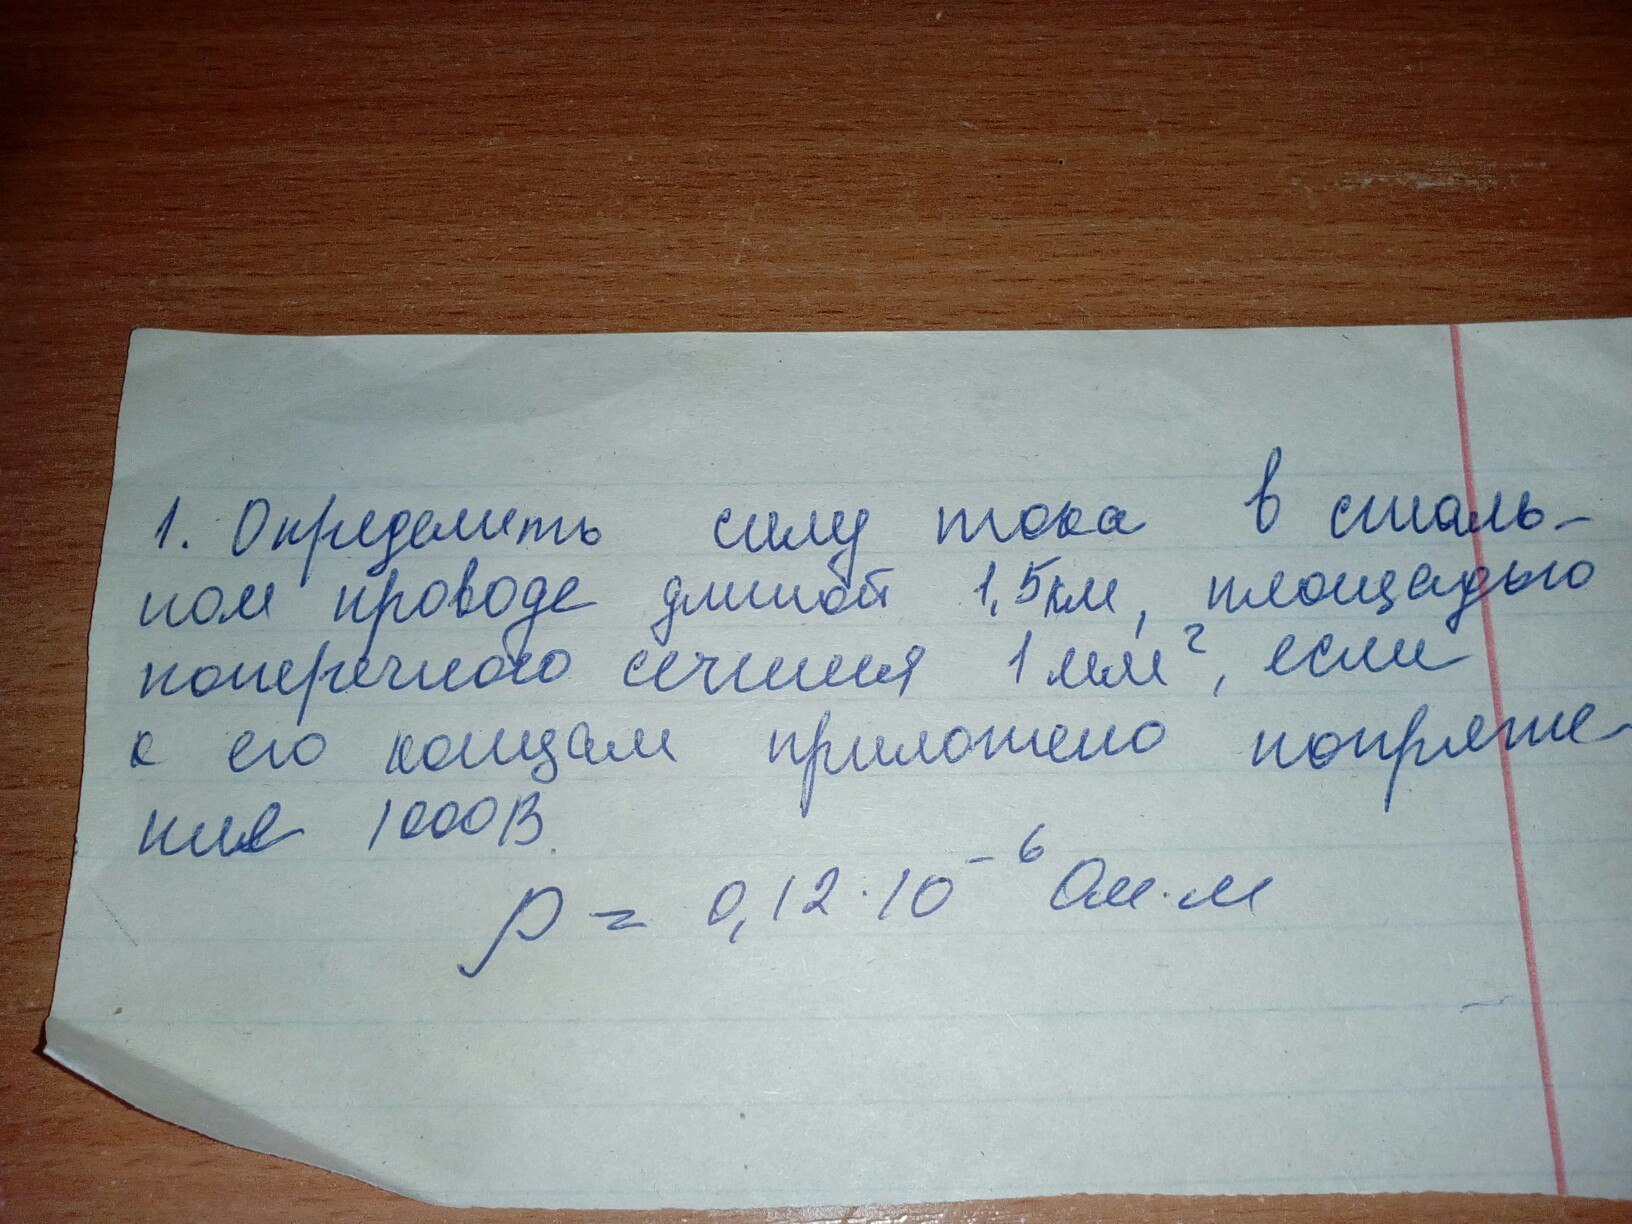 1. Определить силу тока в сталь-
ном проводе длиной 1,5км, площадью
поперечного сечения 1мм², если
к его концам приложено напряже-
ние 1000В.
ρ = 0,12·10⁻⁶ Ом·м